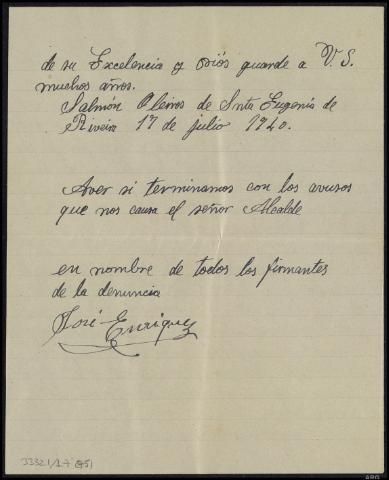 de su Excelencia y Diós guarde a V. S.
muchos años.
Salmón Oleiros de Snta Eugenia de
Riveira 17 de julio 1940.
Aver si terminamos con los avusos
que nos causa el señor Alcalde
en nombre de todos los firmantes
de la denuncia
José Enriquez
33321/1-7